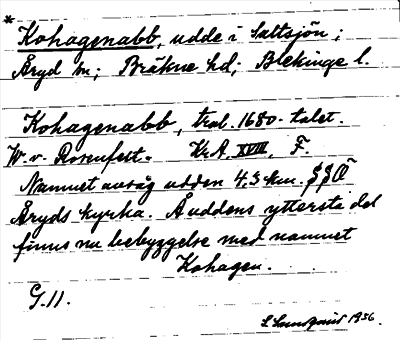 * Kohagenabb, udde i Saltsjön;
Åryd sn; Bräkne hd; Blekinge l.
Kohagenabb, trol. 1680-talet.
W. v. Rosenfelt. Kr.A. XVIII, F.
Namnet avsåg udden 4,3 km. SSÖ
Åryds kyrka. Å uddens yttersta del
finns nu bebyggelse med namnet
Kohagen.
G.11.
S Sundquist 1936.